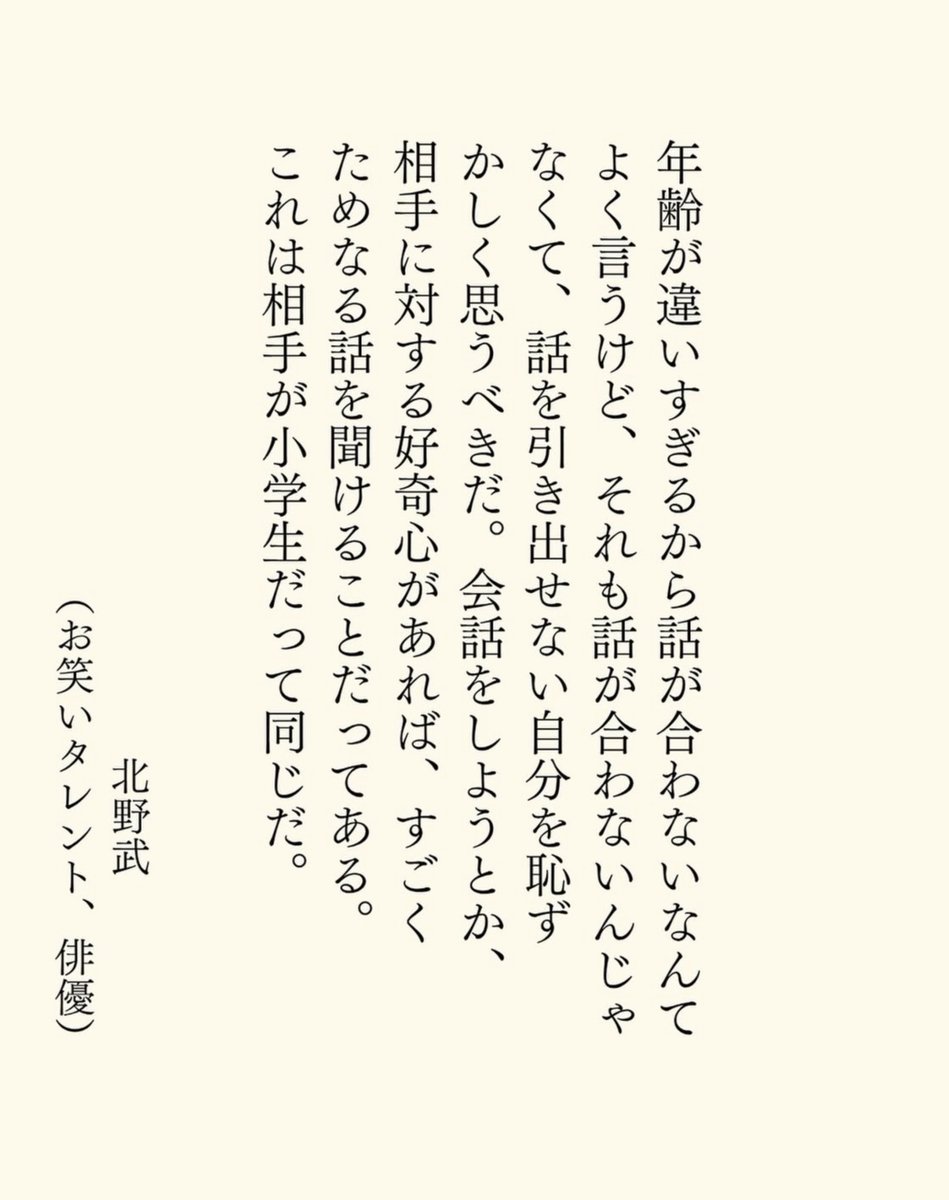 年齢が違いすぎるから話が合わないなんて
よく言うけど、それも話が合わないんじゃ
なくて、話を引き出せない自分を恥ず
かしく思うべきだ。会話をしようとか、
相手に対する好奇心があれば、すごく
ためなる話を聞けることだってある。
これは相手が小学生だって同じだ。
北野武
（お笑いタレント、俳優）